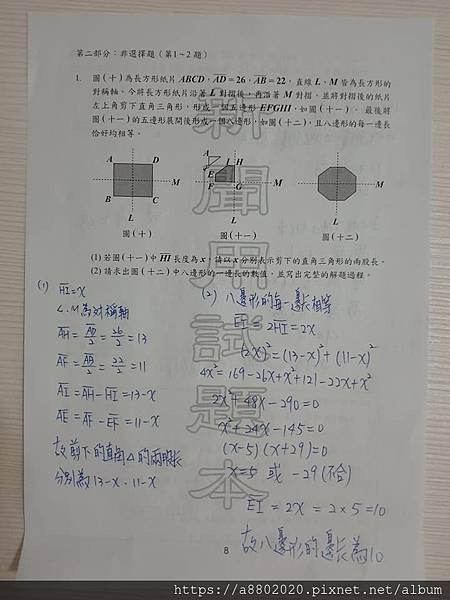 第二部分：非選擇題（第1～2題）
1. 圖(十)為長方形紙片ABCD，AD=26，AB=22，直線L、M皆為長方形的
對稱軸。今將長方形紙片沿著L對摺後，再沿著M對摺，並將對摺後的紙片
左上角剪下直角三角形，形成一個五邊形EFGHI，如圖(十一)。最後將
圖(十一)的五邊形展開後形成一個八邊形，如圖(十二)，且八邊形的每一邊長
恰好均相等。
A D
M
B C
L
圖(十)
A I H
E
M
F G
L
圖(十一)
M
L
圖(十二)
(1)若圖(十一)中HI長度為x，請以x分別表示剪下的直角三角形的兩股長。
(2)請求出圖(十二)中八邊形的一邊長的數值，並寫出完整的解題過程。
新聞用試題本
(1) HI=x
L、M為對稱軸
AH=AD/2=26/2=13
AF=AB/2=22/2=11
AI=AH-HI=13-x
AE=AF-EF=11-x
故剪下的直角△的兩股長
分別為13-x、11-x
(2) 八邊形的每一邊長相等
EI=2HI=2x
(2x)²=(13-x)²+(11-x)²
4x²=169-26x+x²+121-22x+x²
2x²+48x-290=0
x²+24x-145=0
(x-5)(x+29)=0
x=5 或 -29(不合)
EI=2x=2×5=10
故八邊形的邊長為10
8
https://a8802020.pixnet.net/album